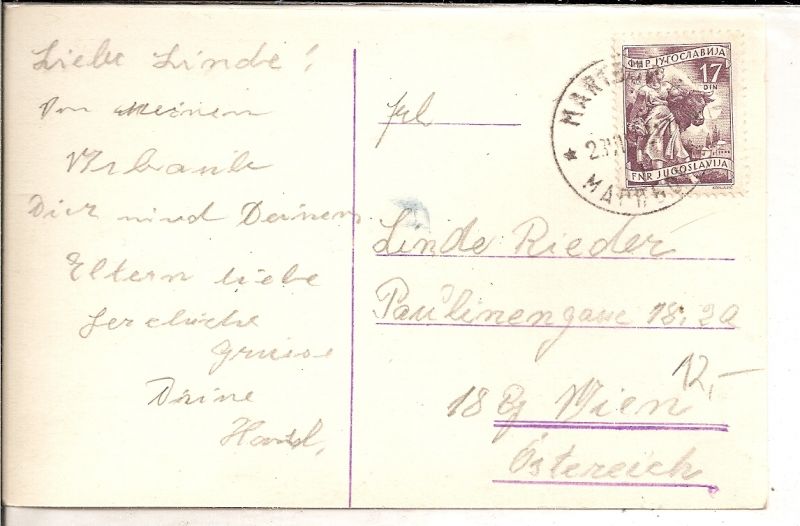 Liebe Linde!
Von Meinem
Urlaub
Dir und Deinen
Eltern liebe
herzliche
Grüsse
Deine
ФНР ЈУГОСЛАВИЈА
17
DIN
FNR JUGOSLAVIJA
MART
Frl
Linde Rieder
Paulinengasse 18, 2a
12,—
18 Bj Wien
Österreich